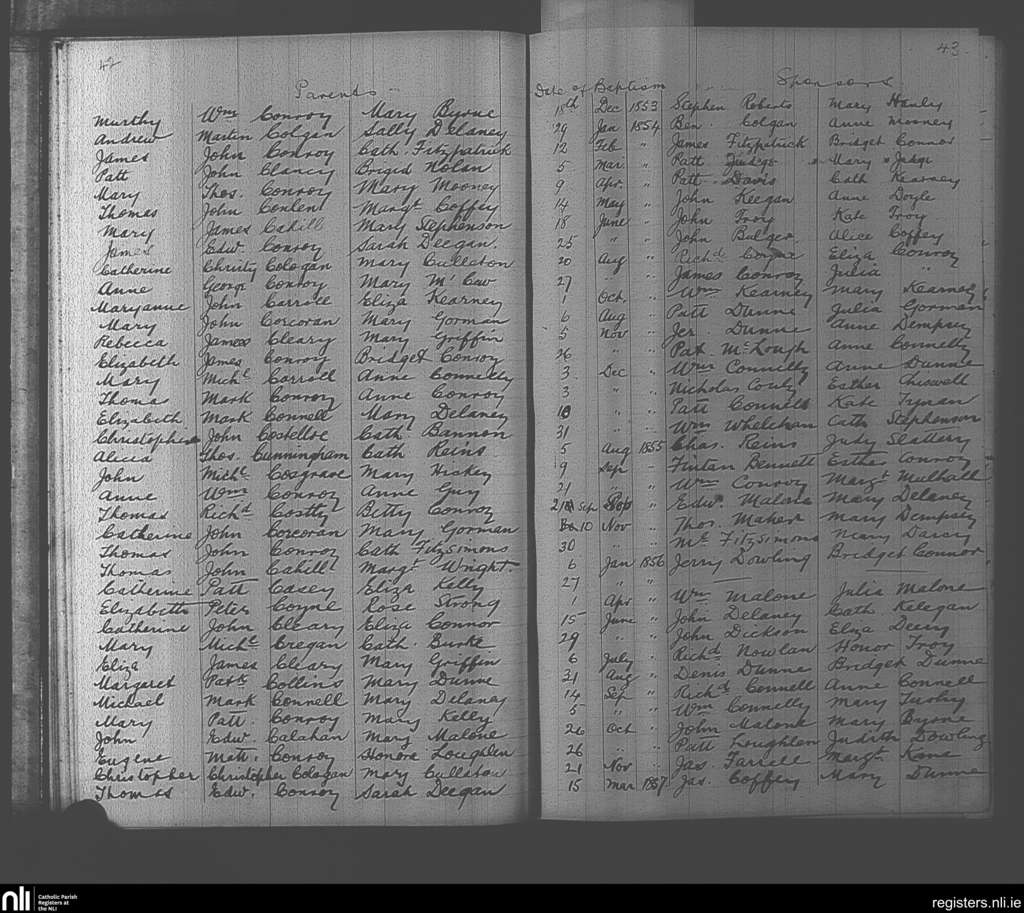 42
Parents
Murthy Wm Conroy Mary Byrne
Andrew Martin Colgan Sally Delaney
James John Conroy Cath. Fitzpatrick
Patt John Clancy Brigid Nolan
Mary Thos. Conroy Mary Mooney
Thomas John Conlent Margt Coffey
Mary James Cahill Mary Stephenson
James Edw. Conroy Sarah Deegan.
Catherine Christy Cologan Mary Cullaton
Anne George Conroy Mary Mc Cew
Maryanne John Carroll Eliza Kearney
Mary John Corcoran Mary Gorman
Rebecca James Cleary Mary Griffin
Elizabeth James Conroy Bridget Conroy
Mary Michl Carroll Anne Connelly
Thomas Mark Conroy Anne Conroy
Elizabeth Mark Connell Mary Delaney
Christopher John Costelloe Cath. Bannon
Alicia Thos. Cunningham Cath Reins
John Michl Cosgrave Mary Hickey
Anne Wm Conroy Anne Guy
Thomas Richd Costly Betty Conroy
Catherine John Corcoran Mary Gorman
Thomas John Conroy Cath Fitzsimons
Thomas John Cahill Margt Wright.
Catherine Patt Casey Eliza Kelly
Elizabeth Peter Coyne Rose Strong
Catherine John Cleary Eliza Connor
Mary Michl Cregan Cath. Burke
Eliza James Cleary Mary Griffin
Margaret Patt Collins Mary Dunne
Michael Mark Connell Mary Delaney
Mary Patt. Conroy Mary Kelly
John Edw. Calahan Mary Malone
Eugene Matt. Conroy Honora Loughlen
Christopher Christopher Cologan Mary Cullaton
Thomas Edw. Conroy Sarah Deegan
43.
Date of Baptism Sponsors
18th Dec 1853 Stephen Roberts Mary Hanly
29 Jan 1854 Ben. Colgan Anne Mooney
12 Feb " James Fitzpatrick Bridget Connor
5 Mar. " Patt Judge Mary Judge
9 Apr. " Patt Davis Cath Kearney
14 May " John Keegan Anne Doyle
18 June " John Troy Kate Troy
25 " " John Bulger Alice Coffey
20 Aug " Richd Coyne Eliza Conroy
27 " James Conroy Julia "
1 Oct. " Wm Kearney Mary Kearney
6 Aug " Patt Dunne Julia Gorman
5 Nov " Jer. Dunne Anne Dempsey
26 " " Pat. McLough Anne Connelly
3 Dec " Wm Connilly Anne Dunne
3 " " Nicholas Conly Esther Criswell
10 " " Patt Connell Kate Tynan
31 " " Wm Whelehan Cath Stephenson
5 Aug 1855 Chas. Reins Judy Slattery
9 Sep " Fintan Bennett Esther Conroy
21 " " Wm Conroy Margt Mulhall
Sep " Edw. Malone Mary Delaney
10 Nov " Thos. Maher Mary Dempsey
30 " " Fitzsimons Mary Darcy
6 Jan 1856 Jerry Dowling Bridget Connor
27 " "
1 Apr " Wm Malone Julia Malone
15 June " John Delaney Cath. Kelegan
29 " " John Dickson Eliza Deery
6 July " Richd Nowlan Honor Troy
31 Aug " Denis Dunne Bridget Dunne
14 Sep " Richd Connell Anne Connell
5 " " Wm Connelly Mary
26 Oct " John Malone Mary Byrne
26 " " Patt Loughlen Judith Dowling
21 Nov " Jas. Farrell Margt Kane
15 Mar 1857 Jas. Coffey Mary Dunne
nli Catholic Parish
Registers at
the NLI
registers.nli.ie